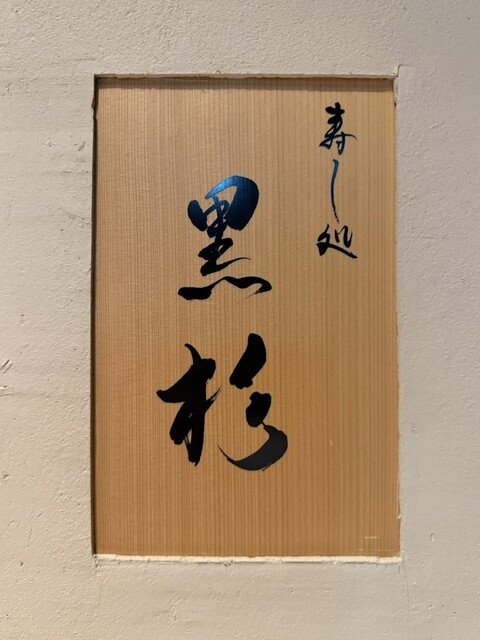 寿し処
黒杉